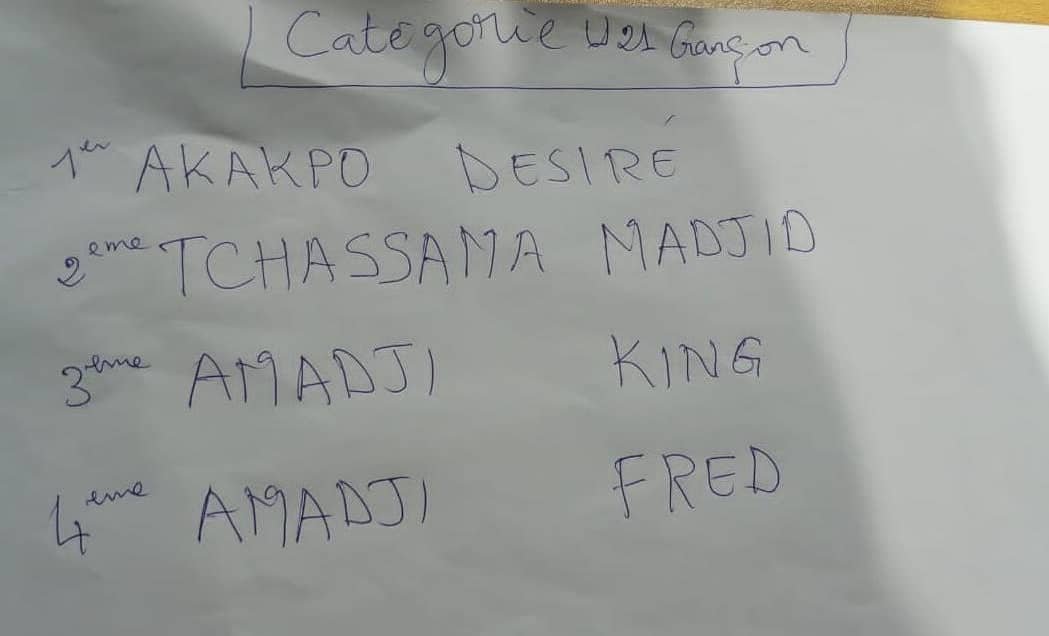 Catégorie U21 Garçon
1er AKAKPO DESIRÉ
2eme TCHASSAMA MADJID
3eme AMADJI KING
4eme AMADJI FRED